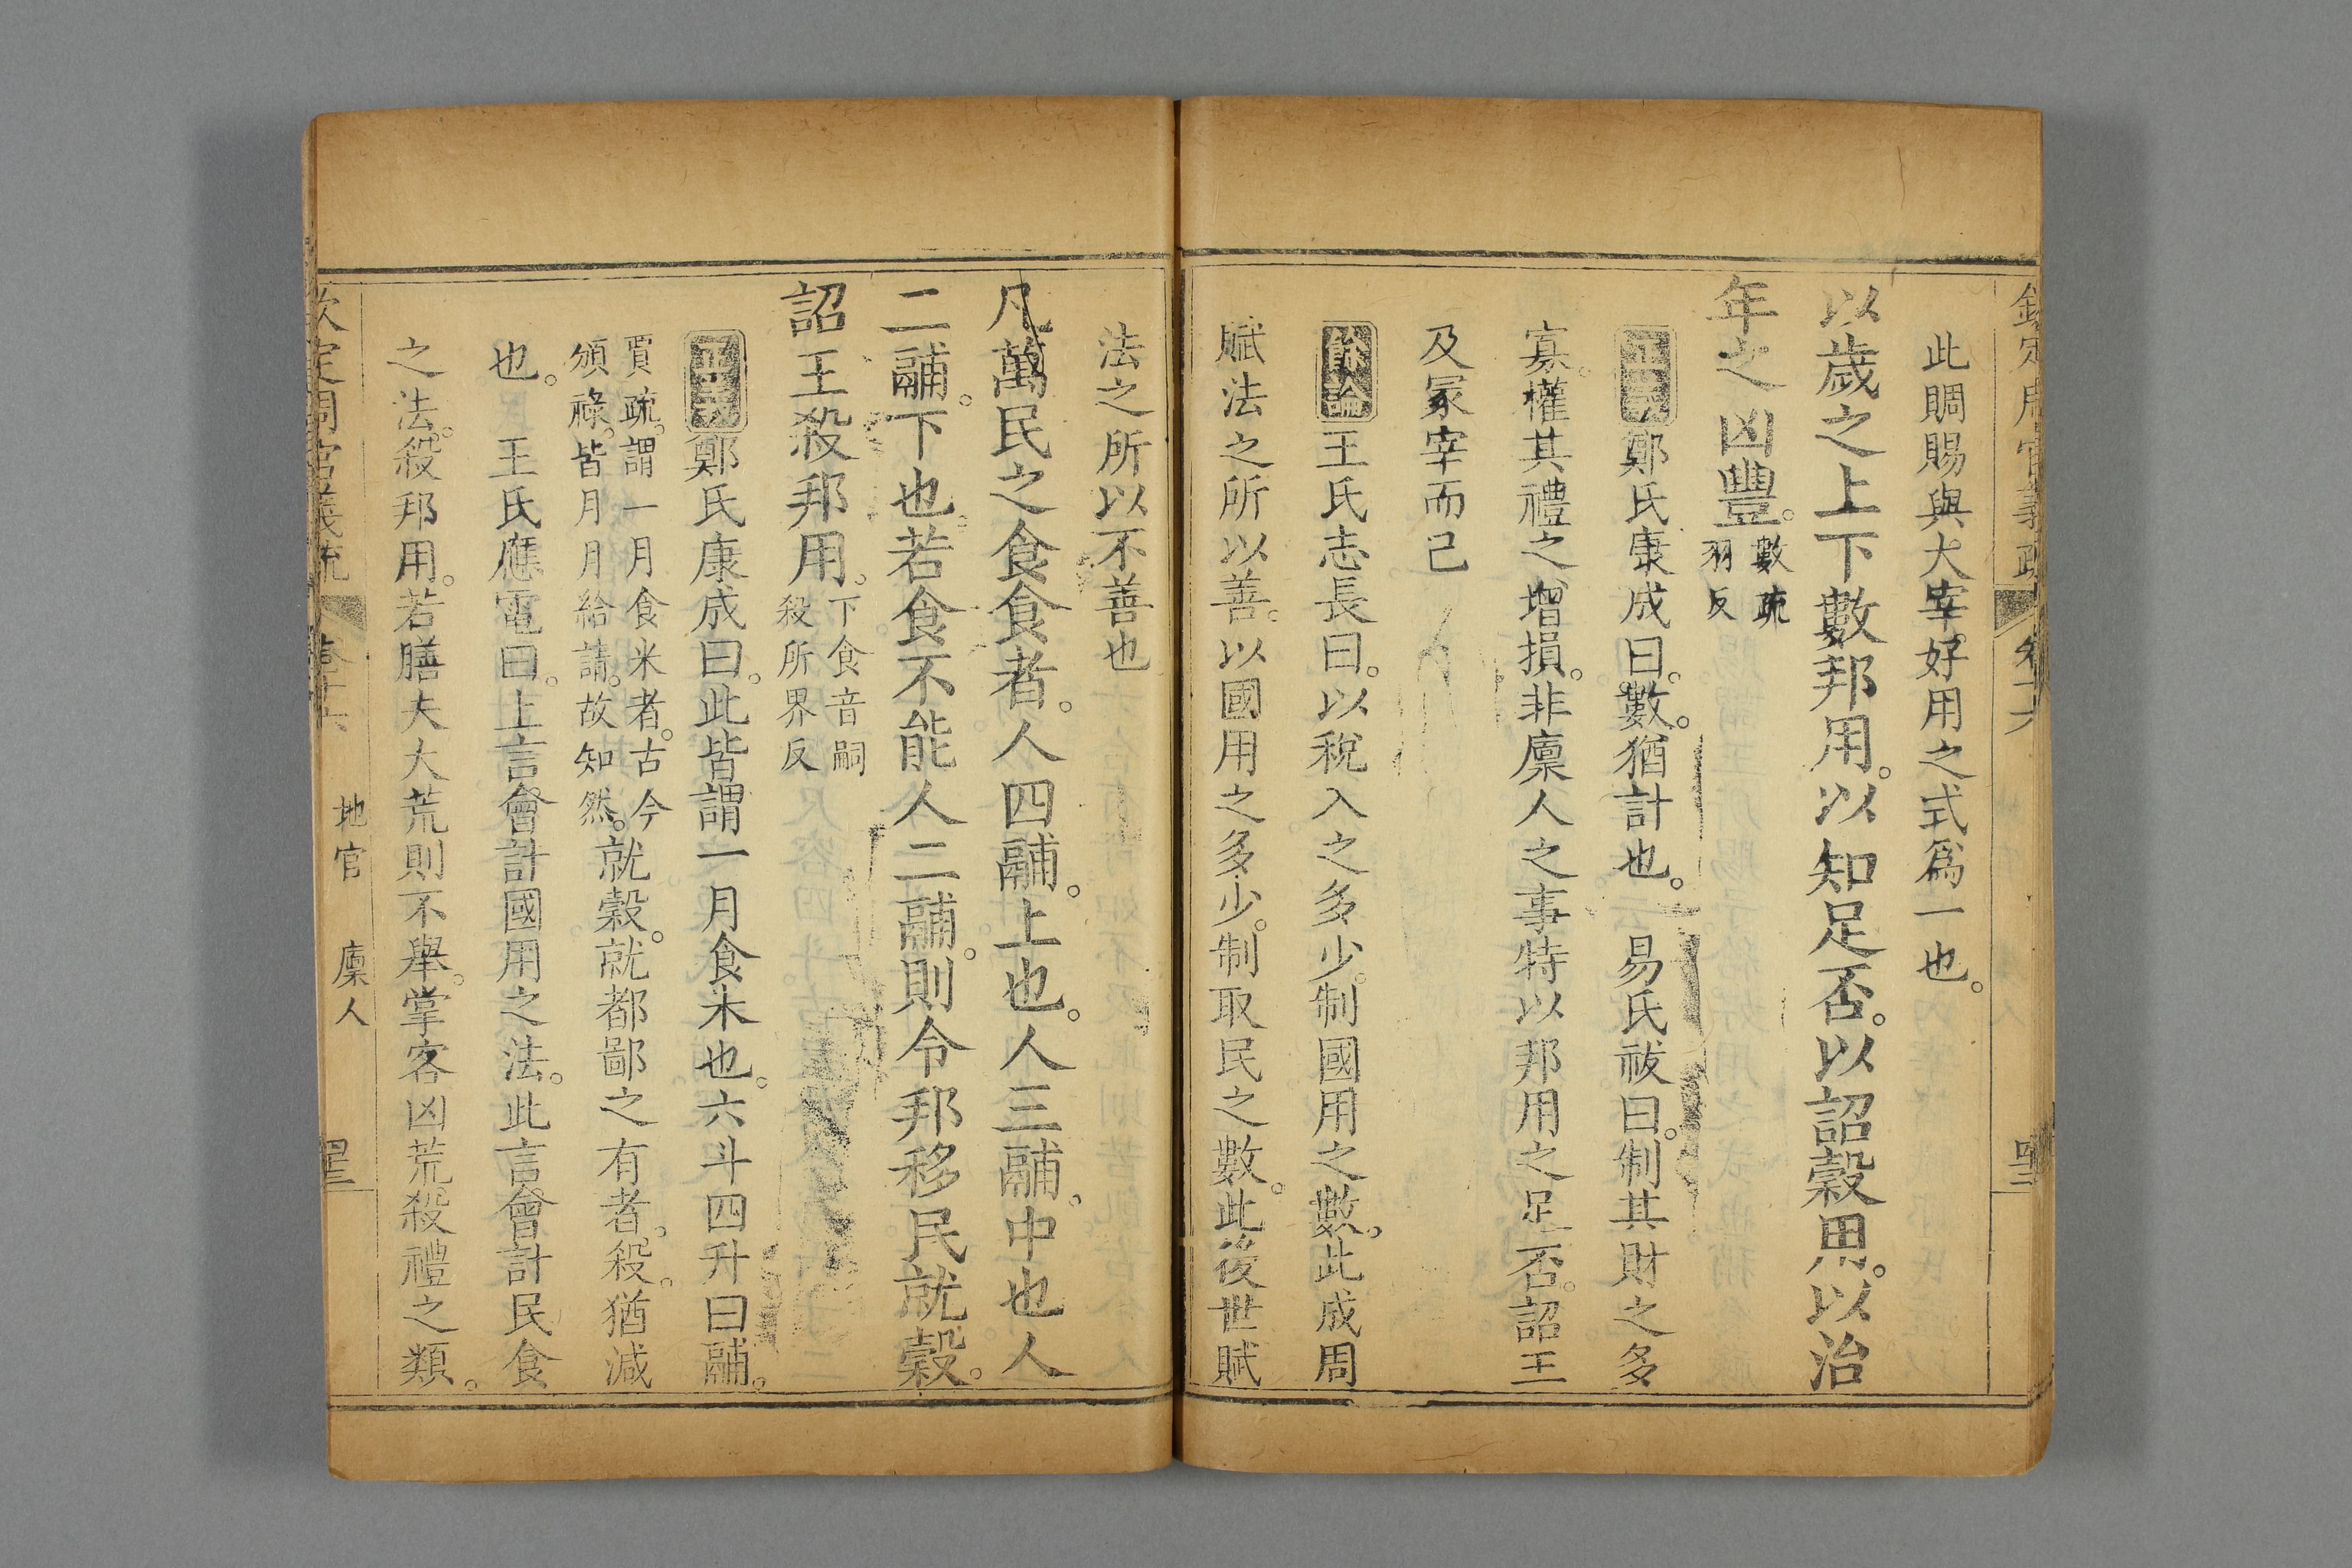 欽定周官義疏 卷十六 四十二
此賙賜與大宰好用之式爲一也。
以歲之上下數邦用。以知足否。以詔穀用。以治
年之凶豐。數疏
羽反
正義鄭氏康成曰。數。猶計也。 易氏祓曰。制其財之多
寡。權其禮之增損。非廩人之事特以邦用之足否。詔王
及冢宰而已
餘論王氏志長曰。以稅入之多少。制國用之數。此成周
賦法之所以善。以國用之多少。制取民之數。此後世賦
法之所以不善也
凡萬民之食食者。人四鬴。上也。人三鬴。中也人
二鬴。下也。若食不能人二鬴。則令邦移民就穀。
詔王殺邦用。下食音嗣
殺所界反
正義鄭氏康成曰。此皆謂一月食米也。六斗四升曰鬴。
賈疏。謂一月食米者。古今
頒祿。皆月月給請。故知然。就穀。就都鄙之有者。殺。猶減
也。 王氏應電曰。上言會計國用之法。此言會計民食
之法。殺邦用。若膳夫大荒則不舉。掌客凶荒殺禮之類。
欽定周官義疏 卷十六 地官 廩人 四十三